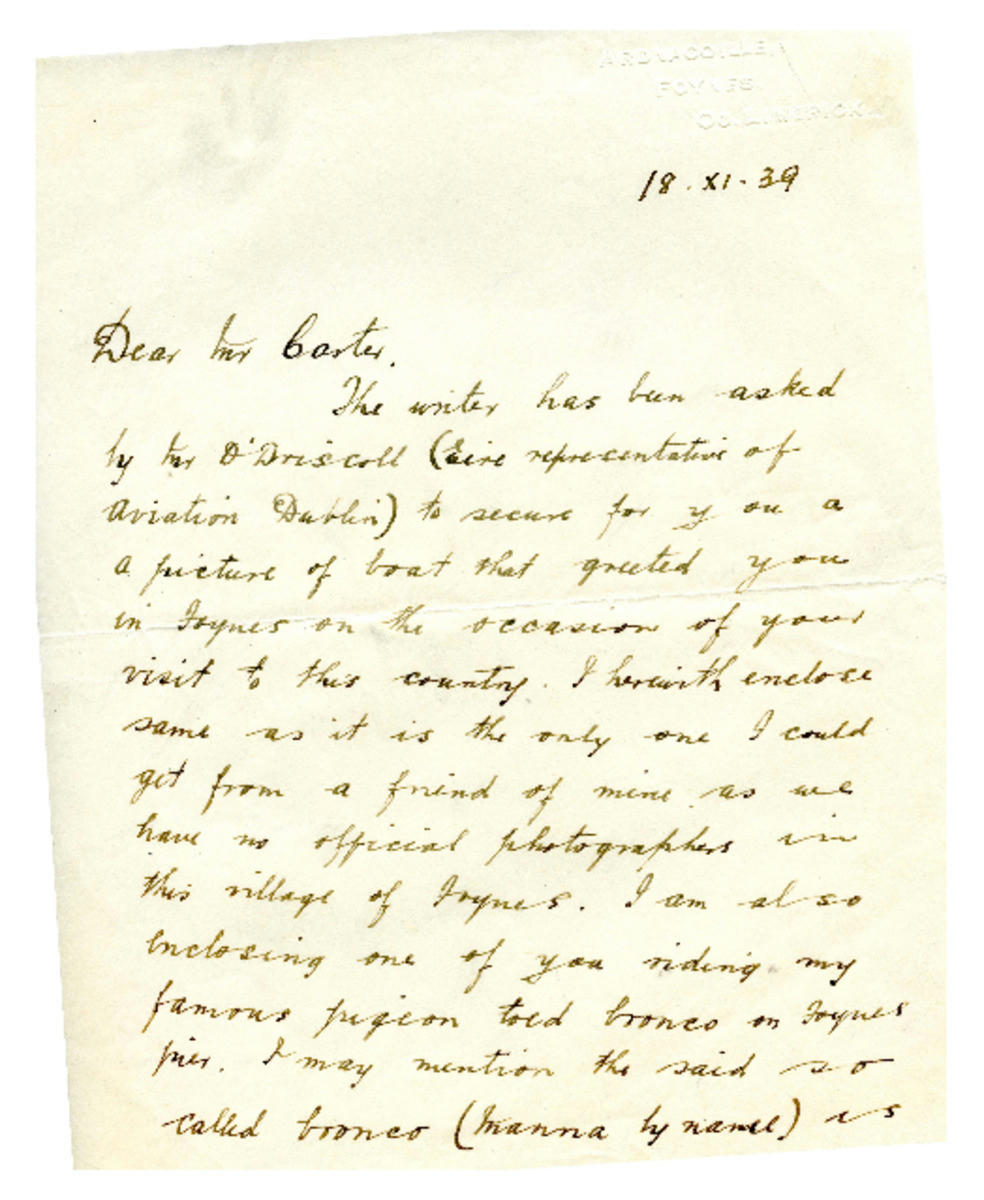 ARDVACOILLE,
FOYNES.
CO. LIMERICK.
18. XI. 39
Dear Mr Carter,
The writer has been asked
by Mr O'Driscoll (Eire representative of
Aviation Dublin) to secure for you a
a picture of boat that greeted you
in Foynes on the occasion of your
visit to this country. I herewith enclose
same as it is the only one I could
get from a friend of mine as we
have no official photographers in
this village of Foynes. I am also
enclosing one of you riding my
famous pigeon toed bronco on Foynes
pier. I may mention the said so
called bronco (Manna by name) is